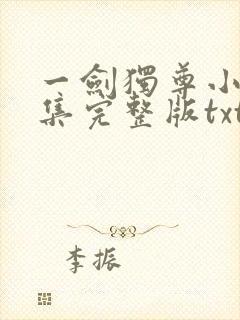 一劍獨尊小
集完整版txt
李振